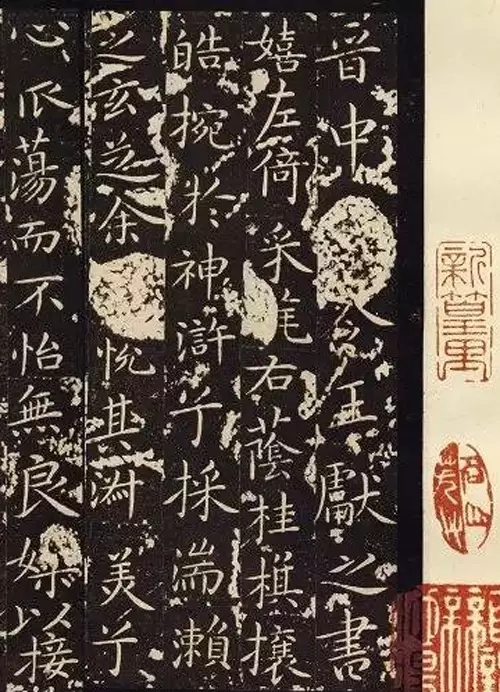 晉中令王獻之書
嬉左倚采旄右蔭桂旗攘
皓捥於神滸兮採湍瀨
之玄芝余悅其淑美兮
心蕩而不怡無良媒以接